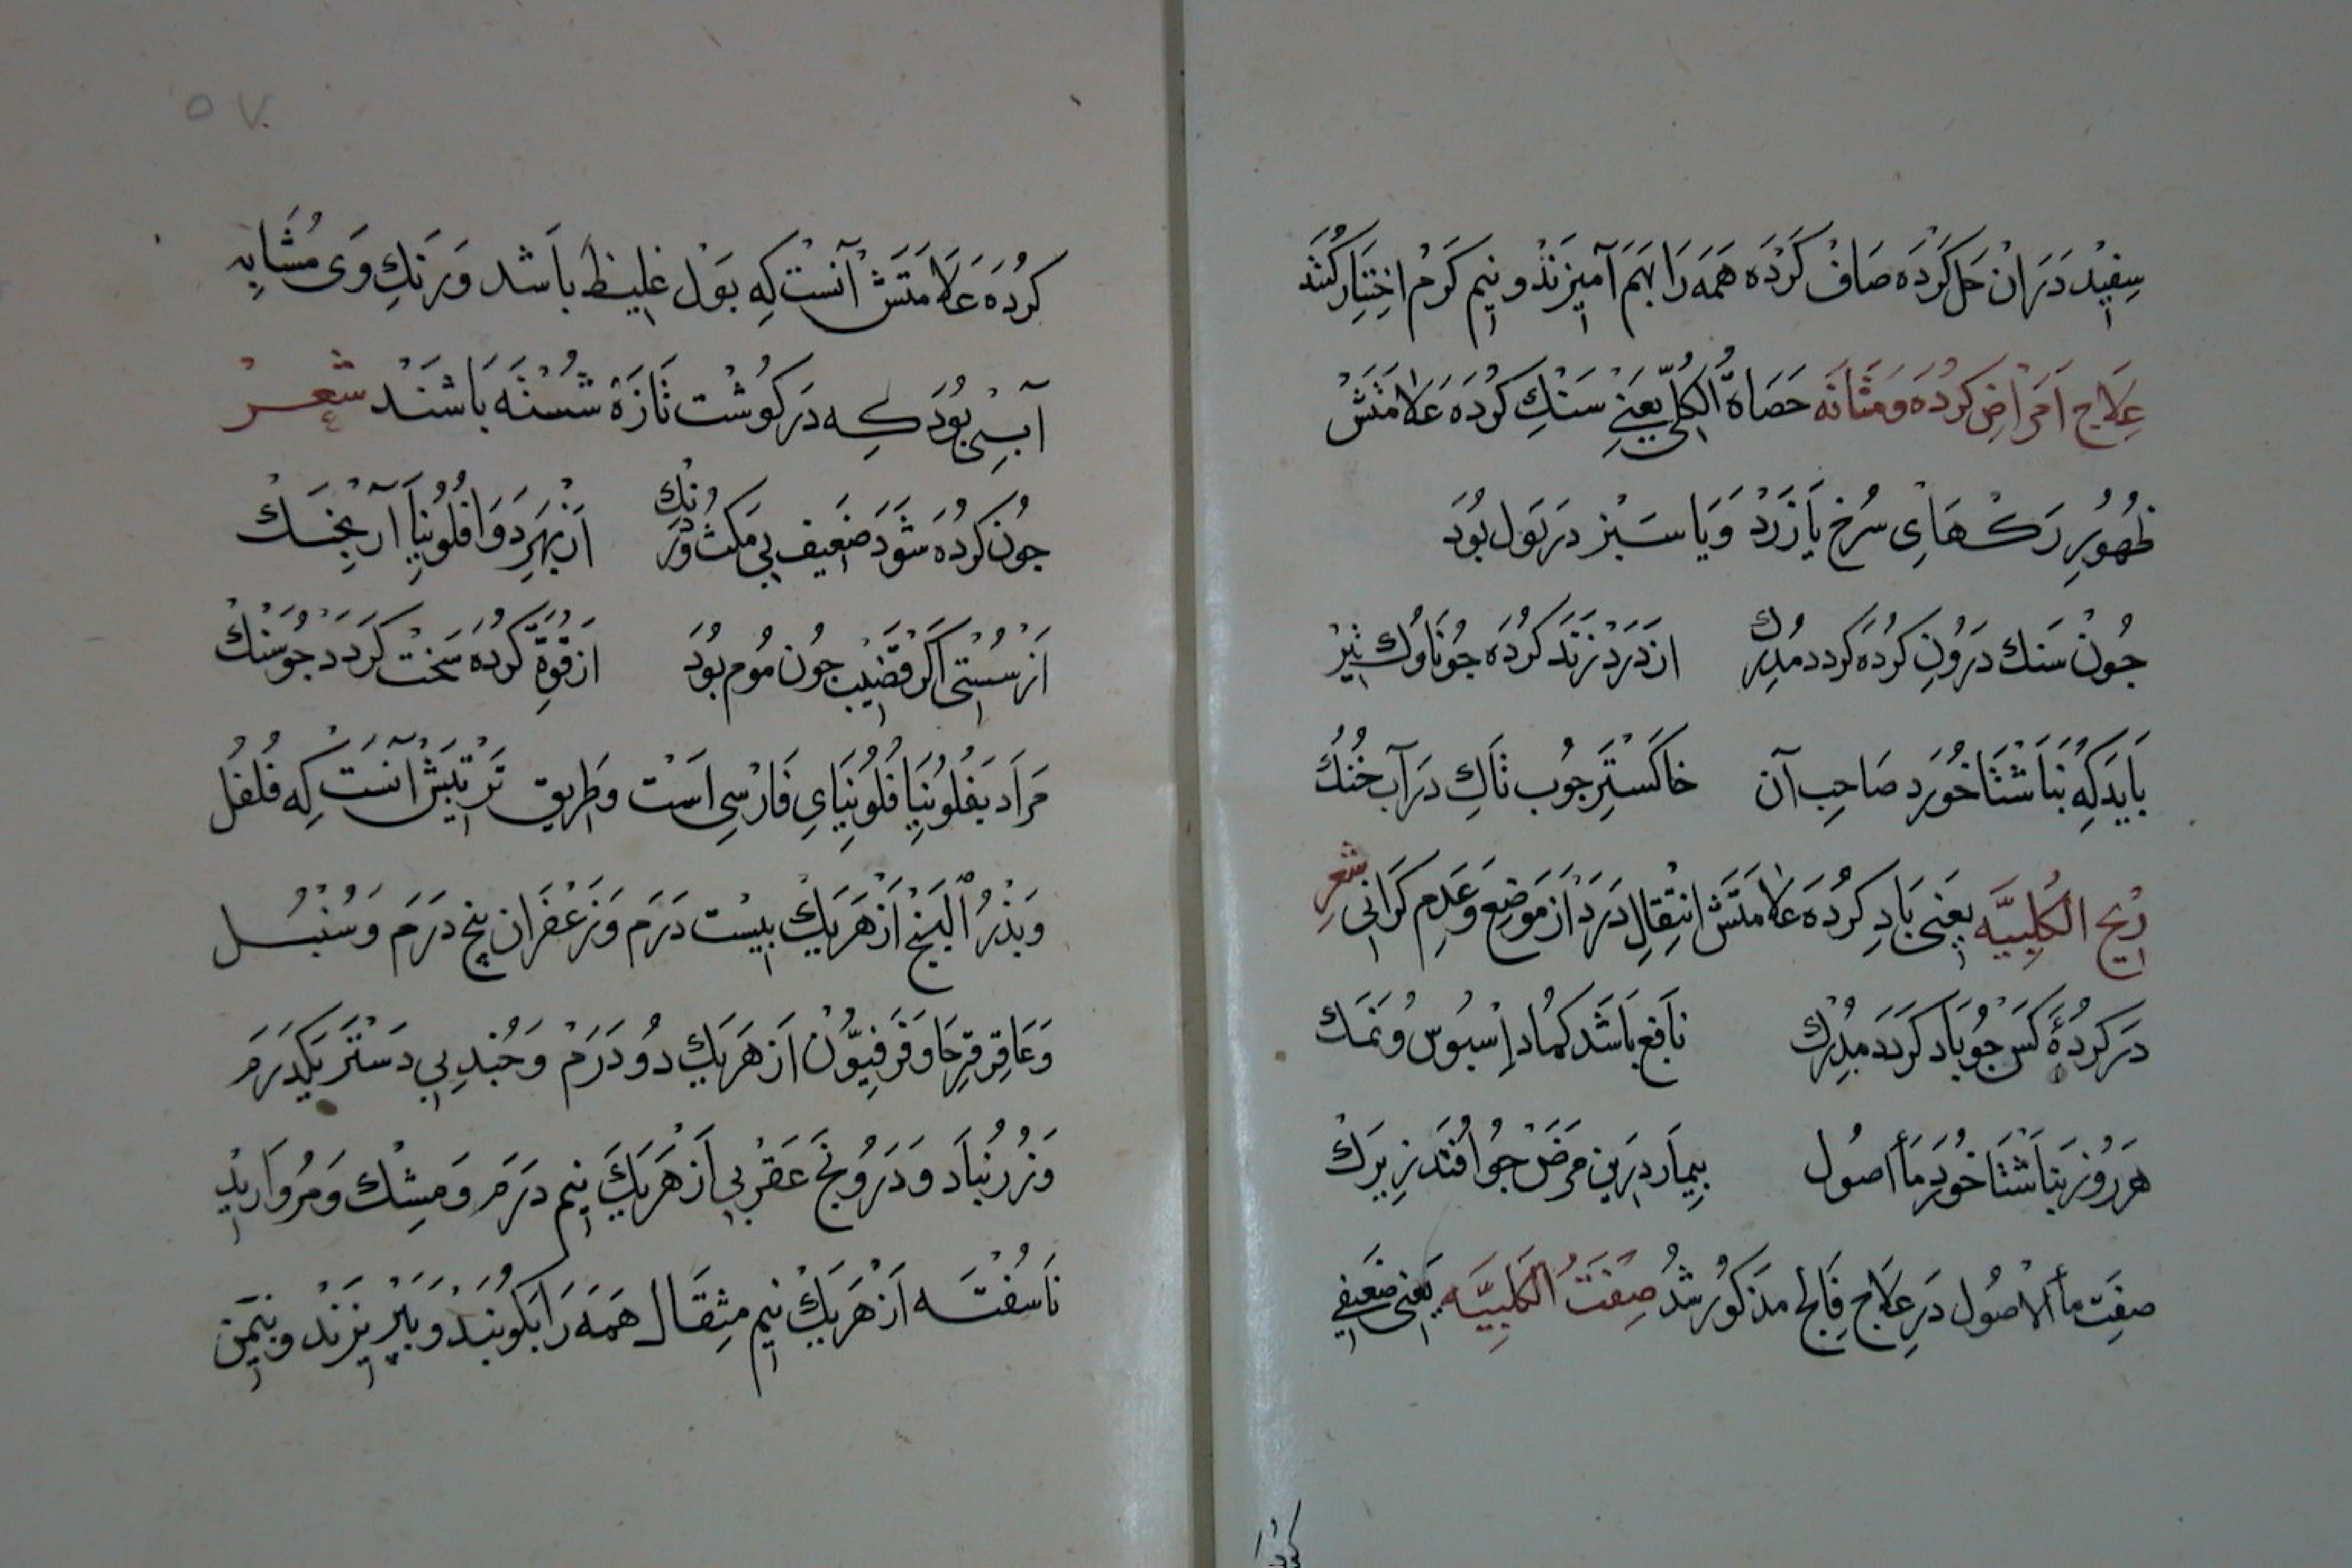 سِفِيدْ دَرَانْ حَل كَرْدَه صَافْ كَرْدَه هَمَه رَا بَهَم آمِيزَنْدْ و نِيم كَرمْ اخْتِيَار كُنَنْد
عِلَاج اَمْرَاضِ كُرْدَه وَ مَثَانَه حَصَاةُ الكُلّي يَعْنِي سَنْكِ كُرْدَه عَلَامَتَشْ
ظُهُورِ رَكْهَايِ سُرْخ يَا زَرْدْ وَ يَا سَبْز دَر بَول بُوَد
جُونْ سَنك دَرُونِ كُرْدَه كردد مُدرِك از دَرْد زَنَد كُرْدَه جُو نَاوُك تِيرْ
بَايَد كِه بَنَاشْتَا خُورَد صَاحِب آن خاكَسْتَرِ جُوب تَاكِ دَر آبِ خُنُكْ
رِيح الكُلِيَّه يَعْنِي بَادِ كُرْدَه عَلَامَتَشْ انْتِقَالِ دَرْد اَز مَوْضِع وَ عَدَمِ كَرَانِى شعر
دَر كُرْدَۀ كَس جُو بَاد كَرْدَد مُدْرِك نَافِع بَاشَد كِمَاد اِسْبُوسُ و نَمَك
هَر رُوز بَنَاشْتَا خُورَد مَأ اصُول بِيمَار دَرِين مَرَضْ جُو اُفْتَد زِيرَكْ
صِفَتِ مأ الاصُول دَر عِلَاجِ فَالِج مَذكُور شُدْ صِفَتُ الكُلِيَّه يَعْنِي ضَعِيفِي
كُرْدَه
٥٧
كُرْدَه عَلَامَتَشْ آنَسْت كِه بَوْل غَلِيظ بَاشد وَ رَنكِ وَى مُشَابِهِ
آبِى بُوَد كِه دَر كُوشْت تَازَهْ شُسْتَه بَاشَنْد شعر
جُون كُرْدَه شَوَد ضَعِيف بِى مَكث وُ دِرَنك اَز بَهَر دَوَا فلُونِيَا آر بِجَنْك
اَز سُسْتِى اَكَر قَضِيب جُون مُوم بُوَد از قُوَّةِ كُرْدَه سَخْت كَرْدَد جُو سَنْك
مُرَاد بَفَلُونِيَا فَلُونِيَايِ فَارْسِي اَسْت وَ طَرِيق تَرْتِيبَشْ آنَسْت كِه فُلفُل
وَ بَذْرُ البَنج اَز هَر يَكْ بِيسْت دَرَم وَ زَعْفَرَان پَنج دَرَم وَ سُنْبُل
وَ عَاقِر قِرحَا وَ فَرفِيُّون اَز هَر يَك دُو دَرَمْ وَ جُندِ بِى دَسْتَر يَكدَرَم
وَ زُرُنبَاد وَ دَرُونَج عَقْرَبي اَز هَر يَك نِيم دَرَم وَ مِشْك وَ مُروَارِيدْ
نَاسُفْتَه اَز هَر يَكْ نِيم مِثقَال هَمَه رَا بَكُوبَنْدُ و بَبِيزَنْد و